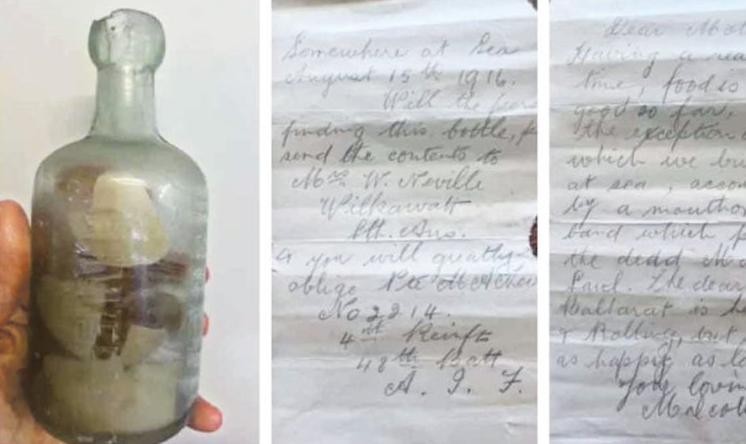 Somewhere at Sea
August 15th 1916.
Will the
finding this bottle,
send the contents to
Mrs W. Neville
Wilkawatt
Sth. Aus.
& you will greatly
oblige Pte M A
No 2214.
4th Reinfts
48th Batt
A. I. F.
Dear
Having a
time, food is
good so far,
the exception
which we bu
at sea,
by a
band which
the dead
The dear
Ballarat is
& Rolling, but
as happy as
Your lovin
Malcol